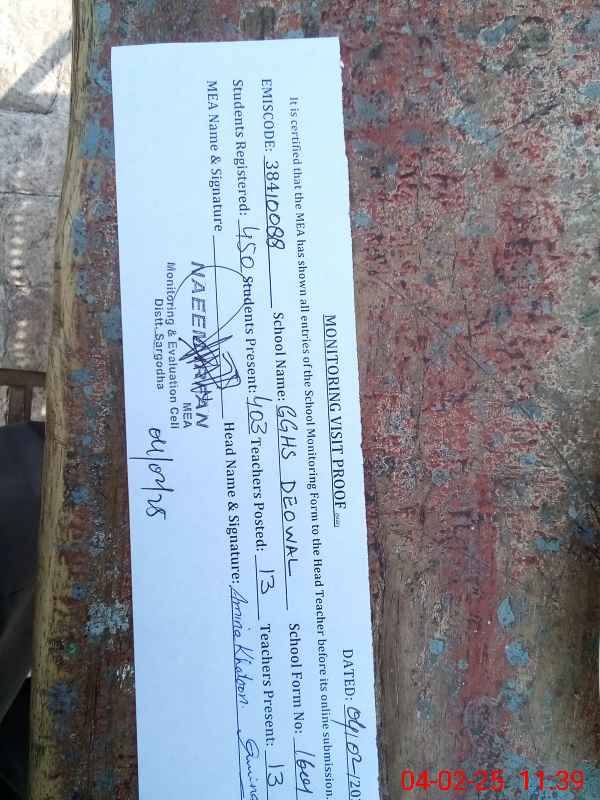 MONITORING VISIT PROOF
DATED: 04/02/202
It is certified that the MEA has shown all entries of the School Monitoring Form to the Head Teacher before its online submission.
EMISCODE: 38410088 School Name: GGHS DEOWAL School Form No:
Students Registered: 450 Students Present: 403 Teachers Posted: 13 Teachers Present: 13
MEA Name & Signature Head Name & Signature: Amina Khatoon
MEA
Monitoring & Evaluation Cell
Distt. Sargodha
04/02/25
04-02-25 11:39